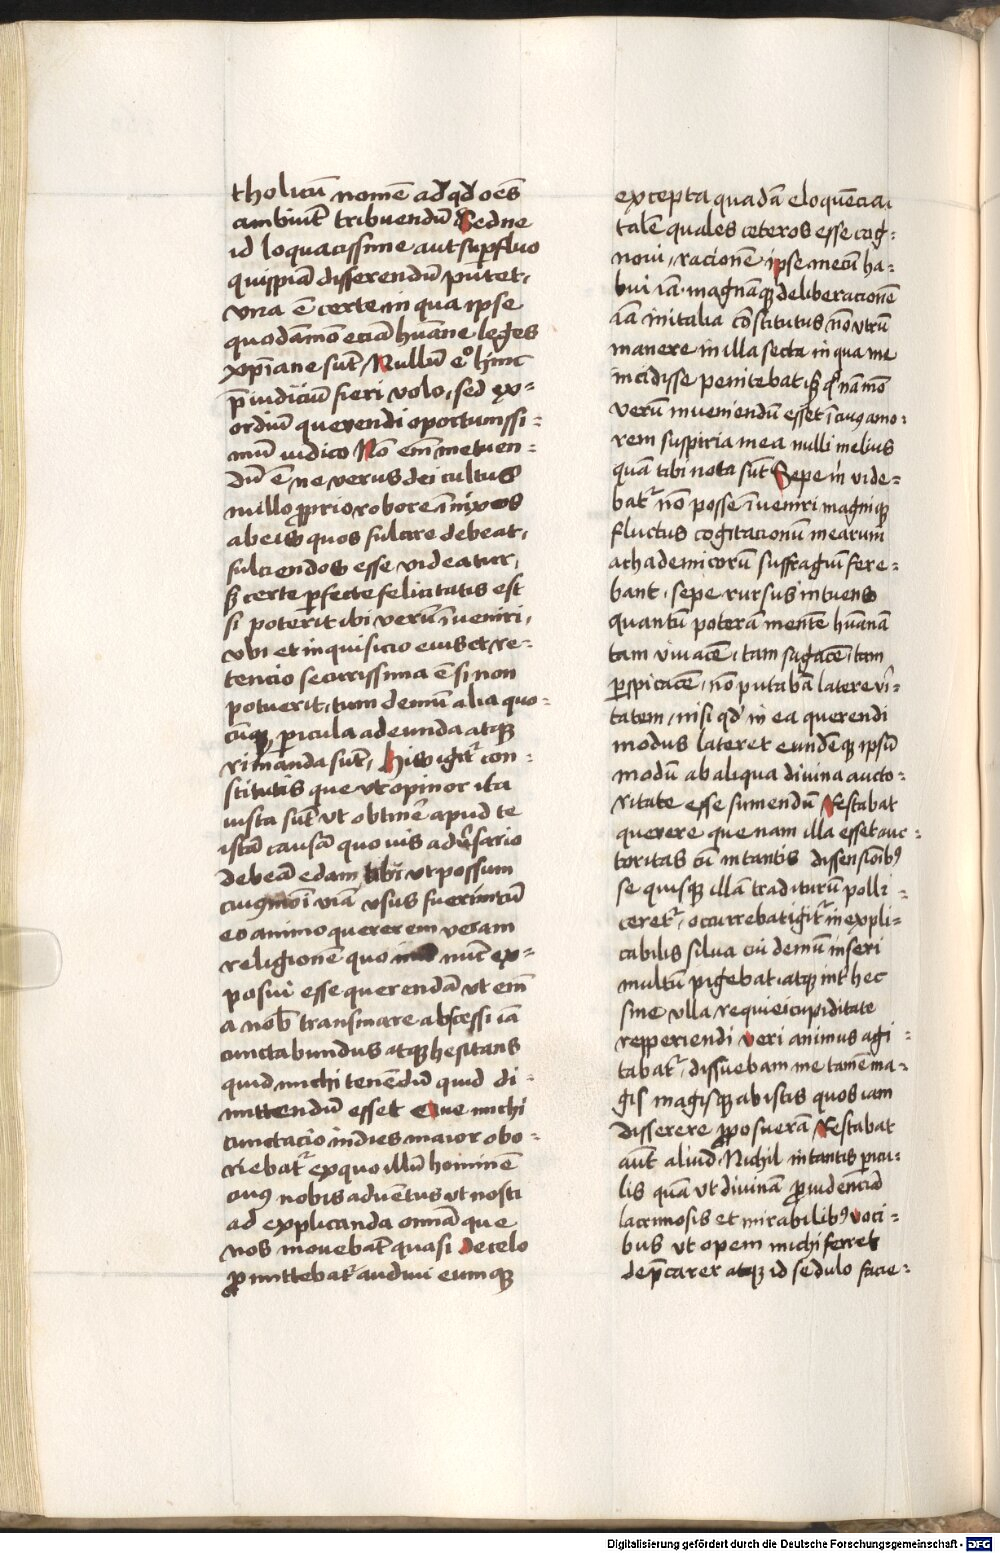 tholicū nomē ad qd oēs
ambiūt tribuendū Sed ne
id loquacissime aut supfluo
quispiā disserendū putet,
vna ē certe in qua ipse
quodāmō eciā huāne leges
xpiane sūt, Nullū eͦ hinc
p̄iudiciū fieri volo, sed ex=
ordiū querendi oportunissi=
mū iudico Nō em̄ metuen=
dū ē, ne verus dei cultus
nullo ꝓprio robore īnixus
ab eis quos fulcire debeat,
fulciendos esse videatur,
Et certe pfecte felicitatis est
si poterit ibi verū īueniri,
vbi et inquisicio eius et re=
tencio securissima ē si non
potuerit, tum demū alia quo=
cūqꝫ picula adeunda atqꝫ
rimanda sūt, His igit̄ con=
stitutis que vt opinor ita
iusta sūt vt obtinē apud te
istā causā quouis adūsario
debeā edam tibi vt possum
cuiꝰmōi viā vsus fuerim cū
eo animo quererem veram
religionē quo nūc ex=
posui esse querendā vt em̄
a nob̄ transmare abscessi iā
cunctabundus atqꝫ hesitans
quid michi tenēdū quid di=
mittendū esset Que michi
cunctacio indies maior obo=
riebat̄ ex quo illū hominē
cuiꝰ nobis aduētus vt nosti
ad explicanda omnia que
nos mouebāt quasi de celo
ꝓmittebat̄ audiui eumqꝫ
excepta quadā eloquēcia
talē quales ceteros esse cog=
noui, racionē ipse mecū ha=
bui iā magnāqꝫ deliberacionē
iā in italia cōstitutus nō vtrū
manere in illa secta in qua me
incidisse penitebat sꝫ q̊nam mō
verū inueniendū esset ī cuiꝰ amo=
rem suspiria mea nulli melius
quā tibi nota sūt Sepe m̄ vide=
bat̄ nō posse īueniri magniqꝫ
fluctus cogitacionū mearum
achademicorū suffragiū fere=
bant, sepe rursus intuens
quantū poterā mentē huānā
tam viuacē, tam sagacē, tam
pspicacē, nō putabā latere vi=
tatem, nisi qd in ea querendi
modus lateret eundēqꝫ ipsū
modū ab aliqua diuina aucto=
ritate esse sumendū Restabat
querere que nam illa esset auc=
toritas cū in tantis dissensiōibꝰ
se quisqꝫ illā traditurū polli=
ceret̄, occurrebat igit̄ inexpli=
cabilis silua cui demū inseri
multū pigebat, atqꝫ int̄ hec
sine vlla requie cupiditate
repperiendi veri animus agi=
tabat̄, dissuebam me tamē ma=
gis magisqꝫ ab istis quos iam
disserere ꝓposuerā Restabat
aūt aliud Nichil in tantis picu=
lis quā vt diuinā ꝓuidenciā
lacrimosis et mirabilibꝰ voci=
bus vt opem michi ferret
dep̄carer atqꝫ id sedulo facie=
Digitalisierung gefördert durch die Deutsche Forschungsgemeinschaft - DFG